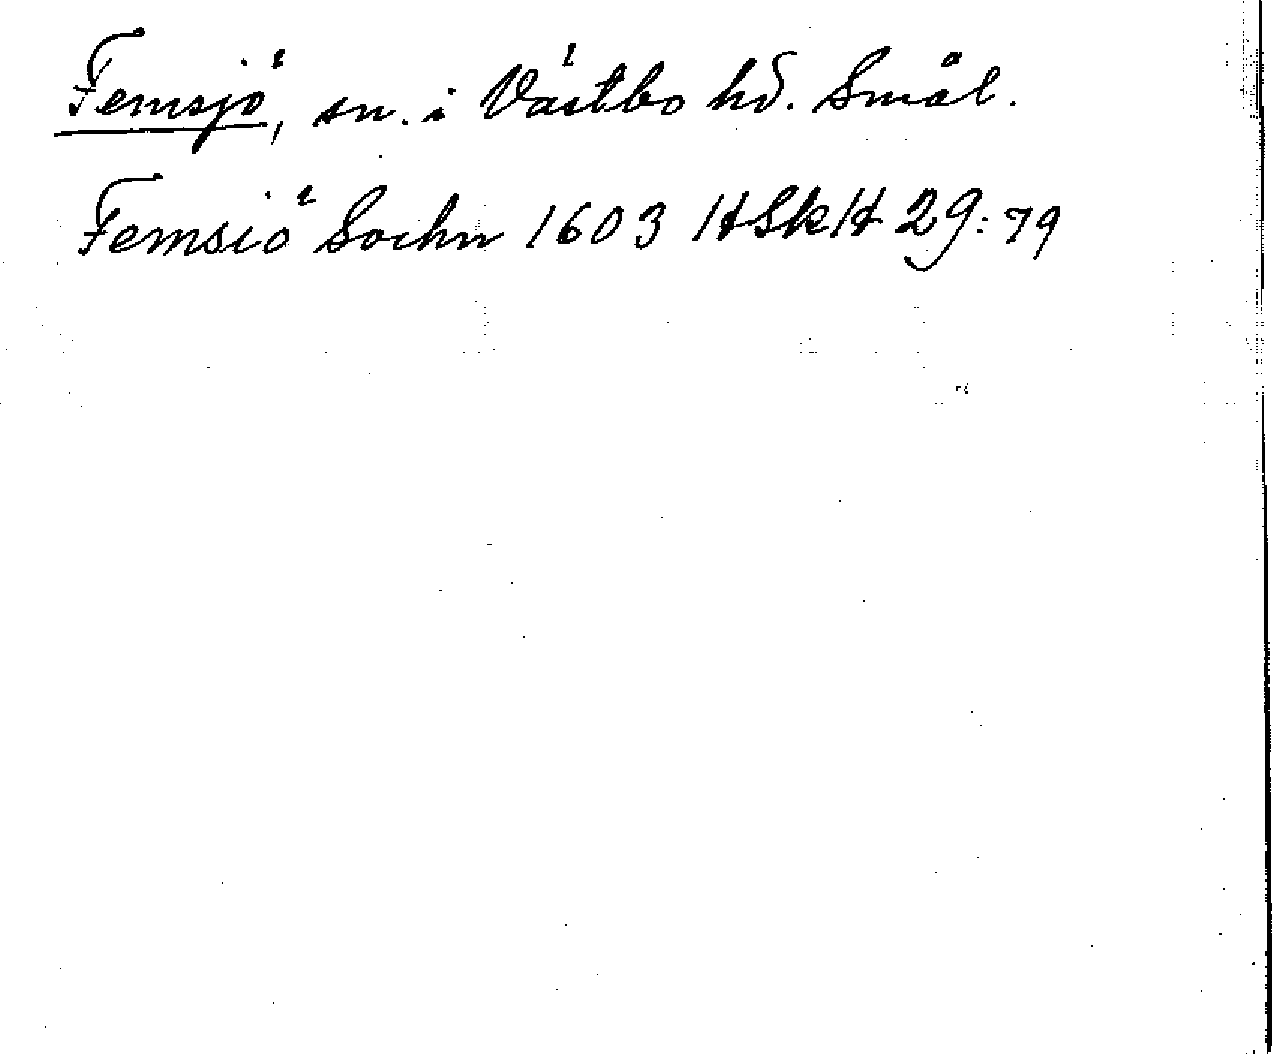 Femsjö, sn. i Västbo hd. Smål.
Femsiö Sochn 1603 HSkH 29:79